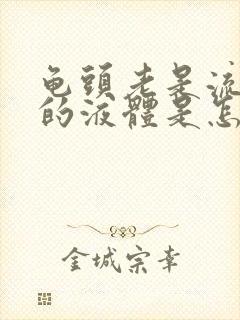 龟頭老是流
的液體是怎
金城宗幸